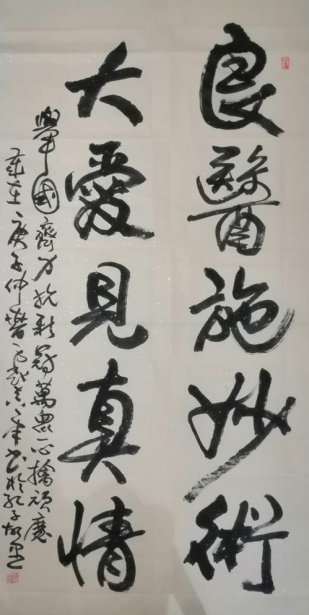 良醫施妙術
大愛見真情
舉國齊力抗新冠萬眾一心擒頑魔
歲在庚子仲春